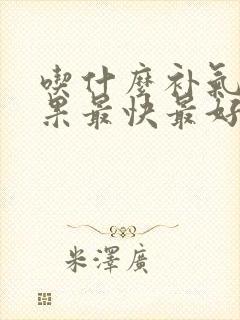 喫什麼补氣
果最快最好
米澤廣